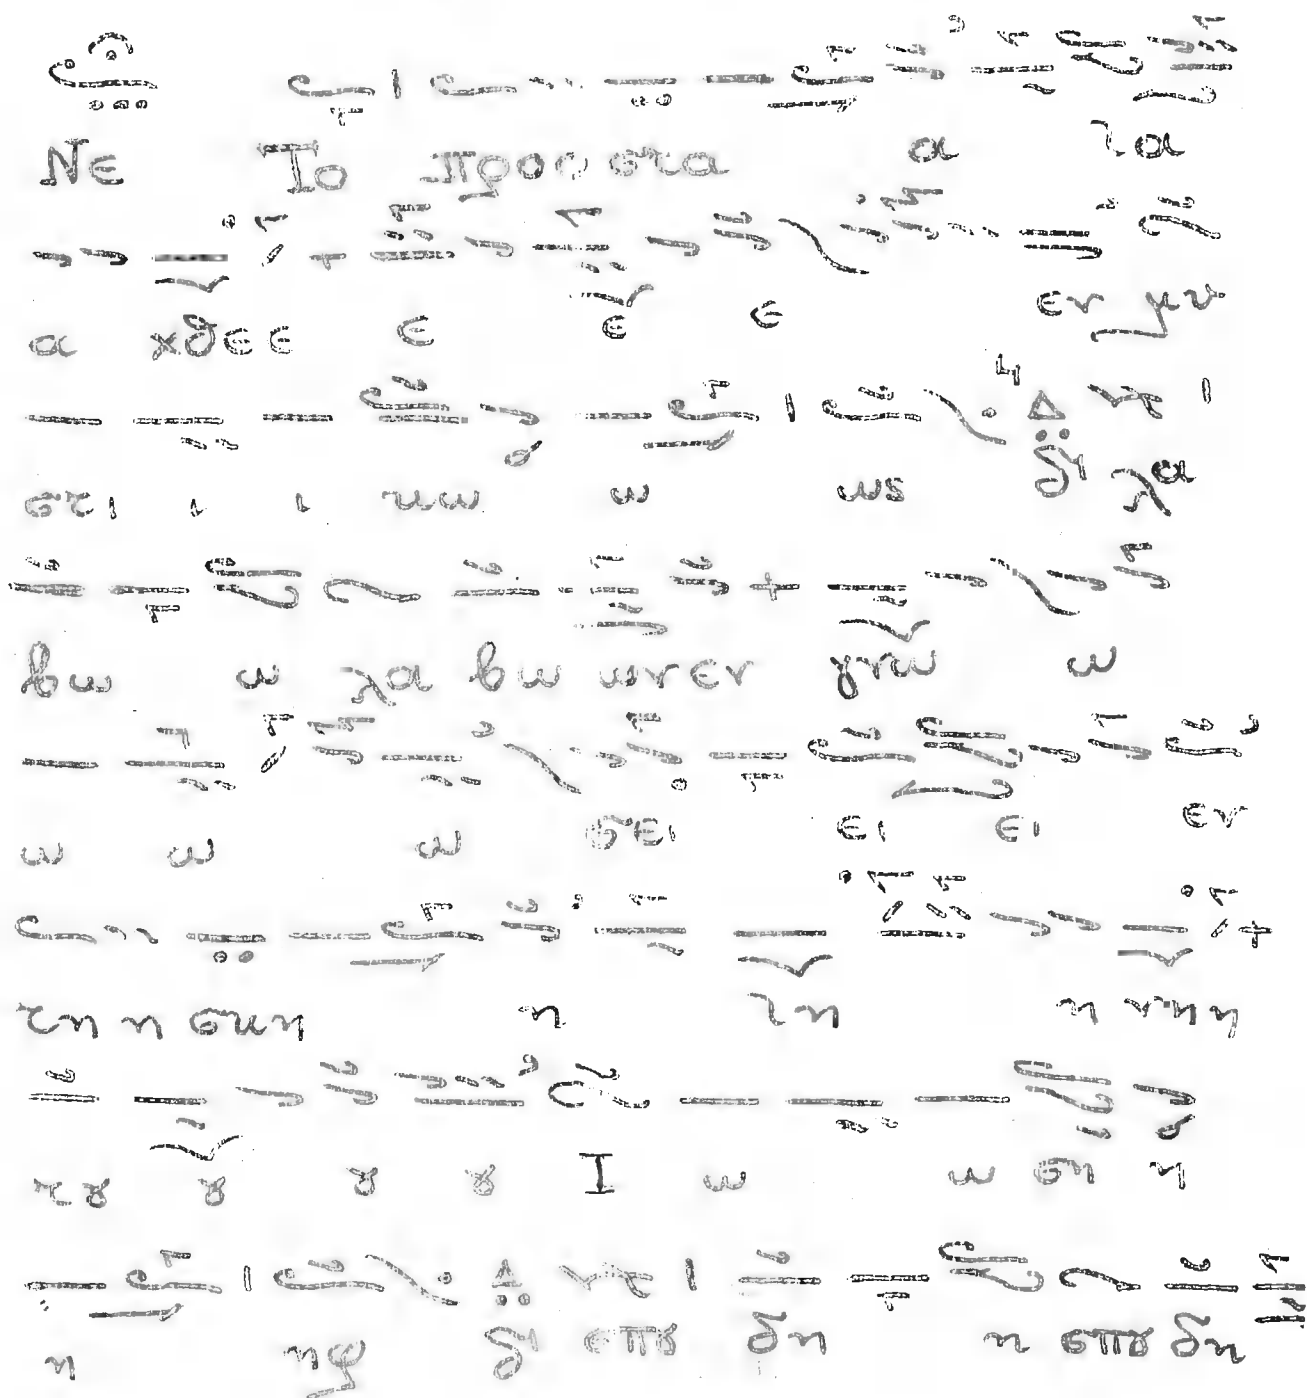 Νε Το προσ στα α γα
α χθεε ε ε ε εν μυ
στι ι ι κω ω ως δι λα
βω ω λα βω ων εν γνω ω
ω ω ω σει ει ει εν
τη η σκη η γη η νηη
τȣ ȣ ȣ ȣ Ι ω ω ση η
η ηφ δ σπȣ δη η σπȣ δη